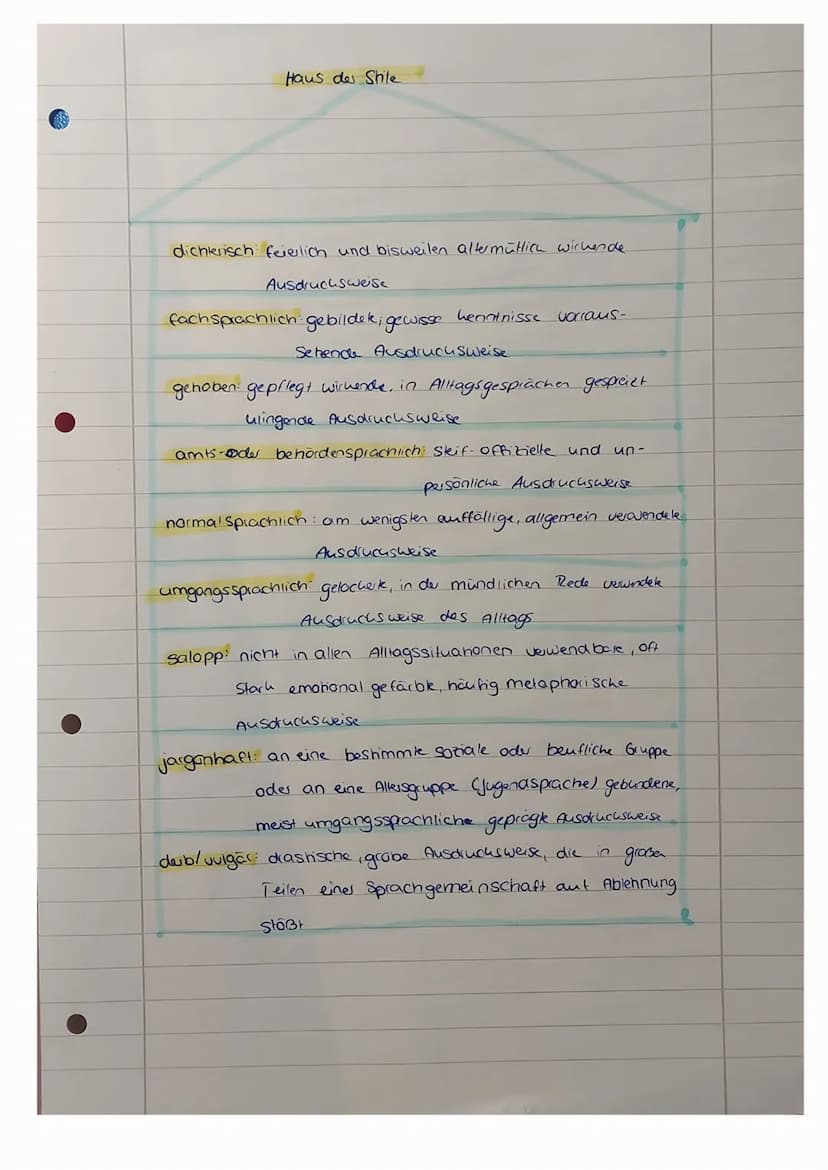 Haus der Stile
dichterisch: feierlich und bisweilen altermütlich wirkende
Ausdrucksweise
fachsprachlich: gebildete, gewisse kenntnisse vorraus-
setzende Ausdrucksweise
gehoben: gepflegt wirkende, in Alltagsgesprächen gespreizt
klingende Ausdrucksweise
amts- oder behördensprachlich: steif-offizielle und un-
persönliche Ausdrucksweise
normalsprachlich: am wenigsten auffällige, allgemein verwendete
Ausdrucksweise
umgangssprachlich: gelockert, in der mündlichen Rede verwendete
Ausdrucksweise des Alltags
salopp: nicht in allen Alltagssituationen verwendbare, oft
stark emotional gefärbte, häufig metaphorische
Ausdrucksweise
jargonhaft: an eine bestimmte soziale oder beufliche Gruppe
oder an eine Altersgruppe (Jugendsprache) gebundene,
meist umgangsspachliche geprägte Ausdrucksweise
derb/vulgär: drastische, grobe Ausdrucksweise, die in großen
Teilen einer Sprachgemeinschaft auf Ablehnung
stößt